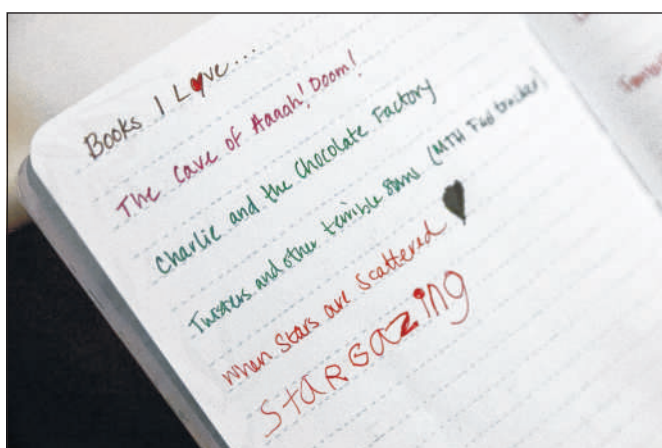 Books I Love...
The Cave of Aaaah! Doom!
Charlie and the Chocolate Factory
Twisters and other terrible (MTH Fact tracker)
When Stars are Scattered
STaRGaZing